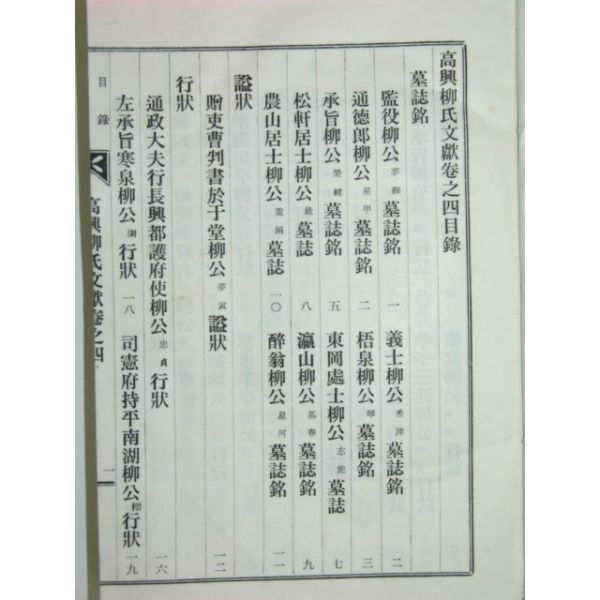 高興柳氏文獻卷之四目錄
墓誌銘
監役柳公夢獅墓誌銘 一 義士柳公希津墓誌銘 二
通德郎柳公星甲墓誌銘 二 梧泉柳公墓誌銘 三
承旨柳公榮輔墓誌銘 五 東岡處士柳公志龍墓誌 七
松軒居士柳公墓誌 八 瀛山柳公基春墓誌銘 九
農山居士柳公重鎬墓誌 一〇 醉翁柳公星河墓誌銘 一一
諡狀
贈吏曹判書於于堂柳公夢寅諡狀 一二
行狀
通政大夫行長興都護府使柳公忠貞行狀 一六
左承旨寒泉柳公行狀 一八 司憲府持平南湖柳公行狀 一九
目錄
高興柳氏文獻卷之四
一